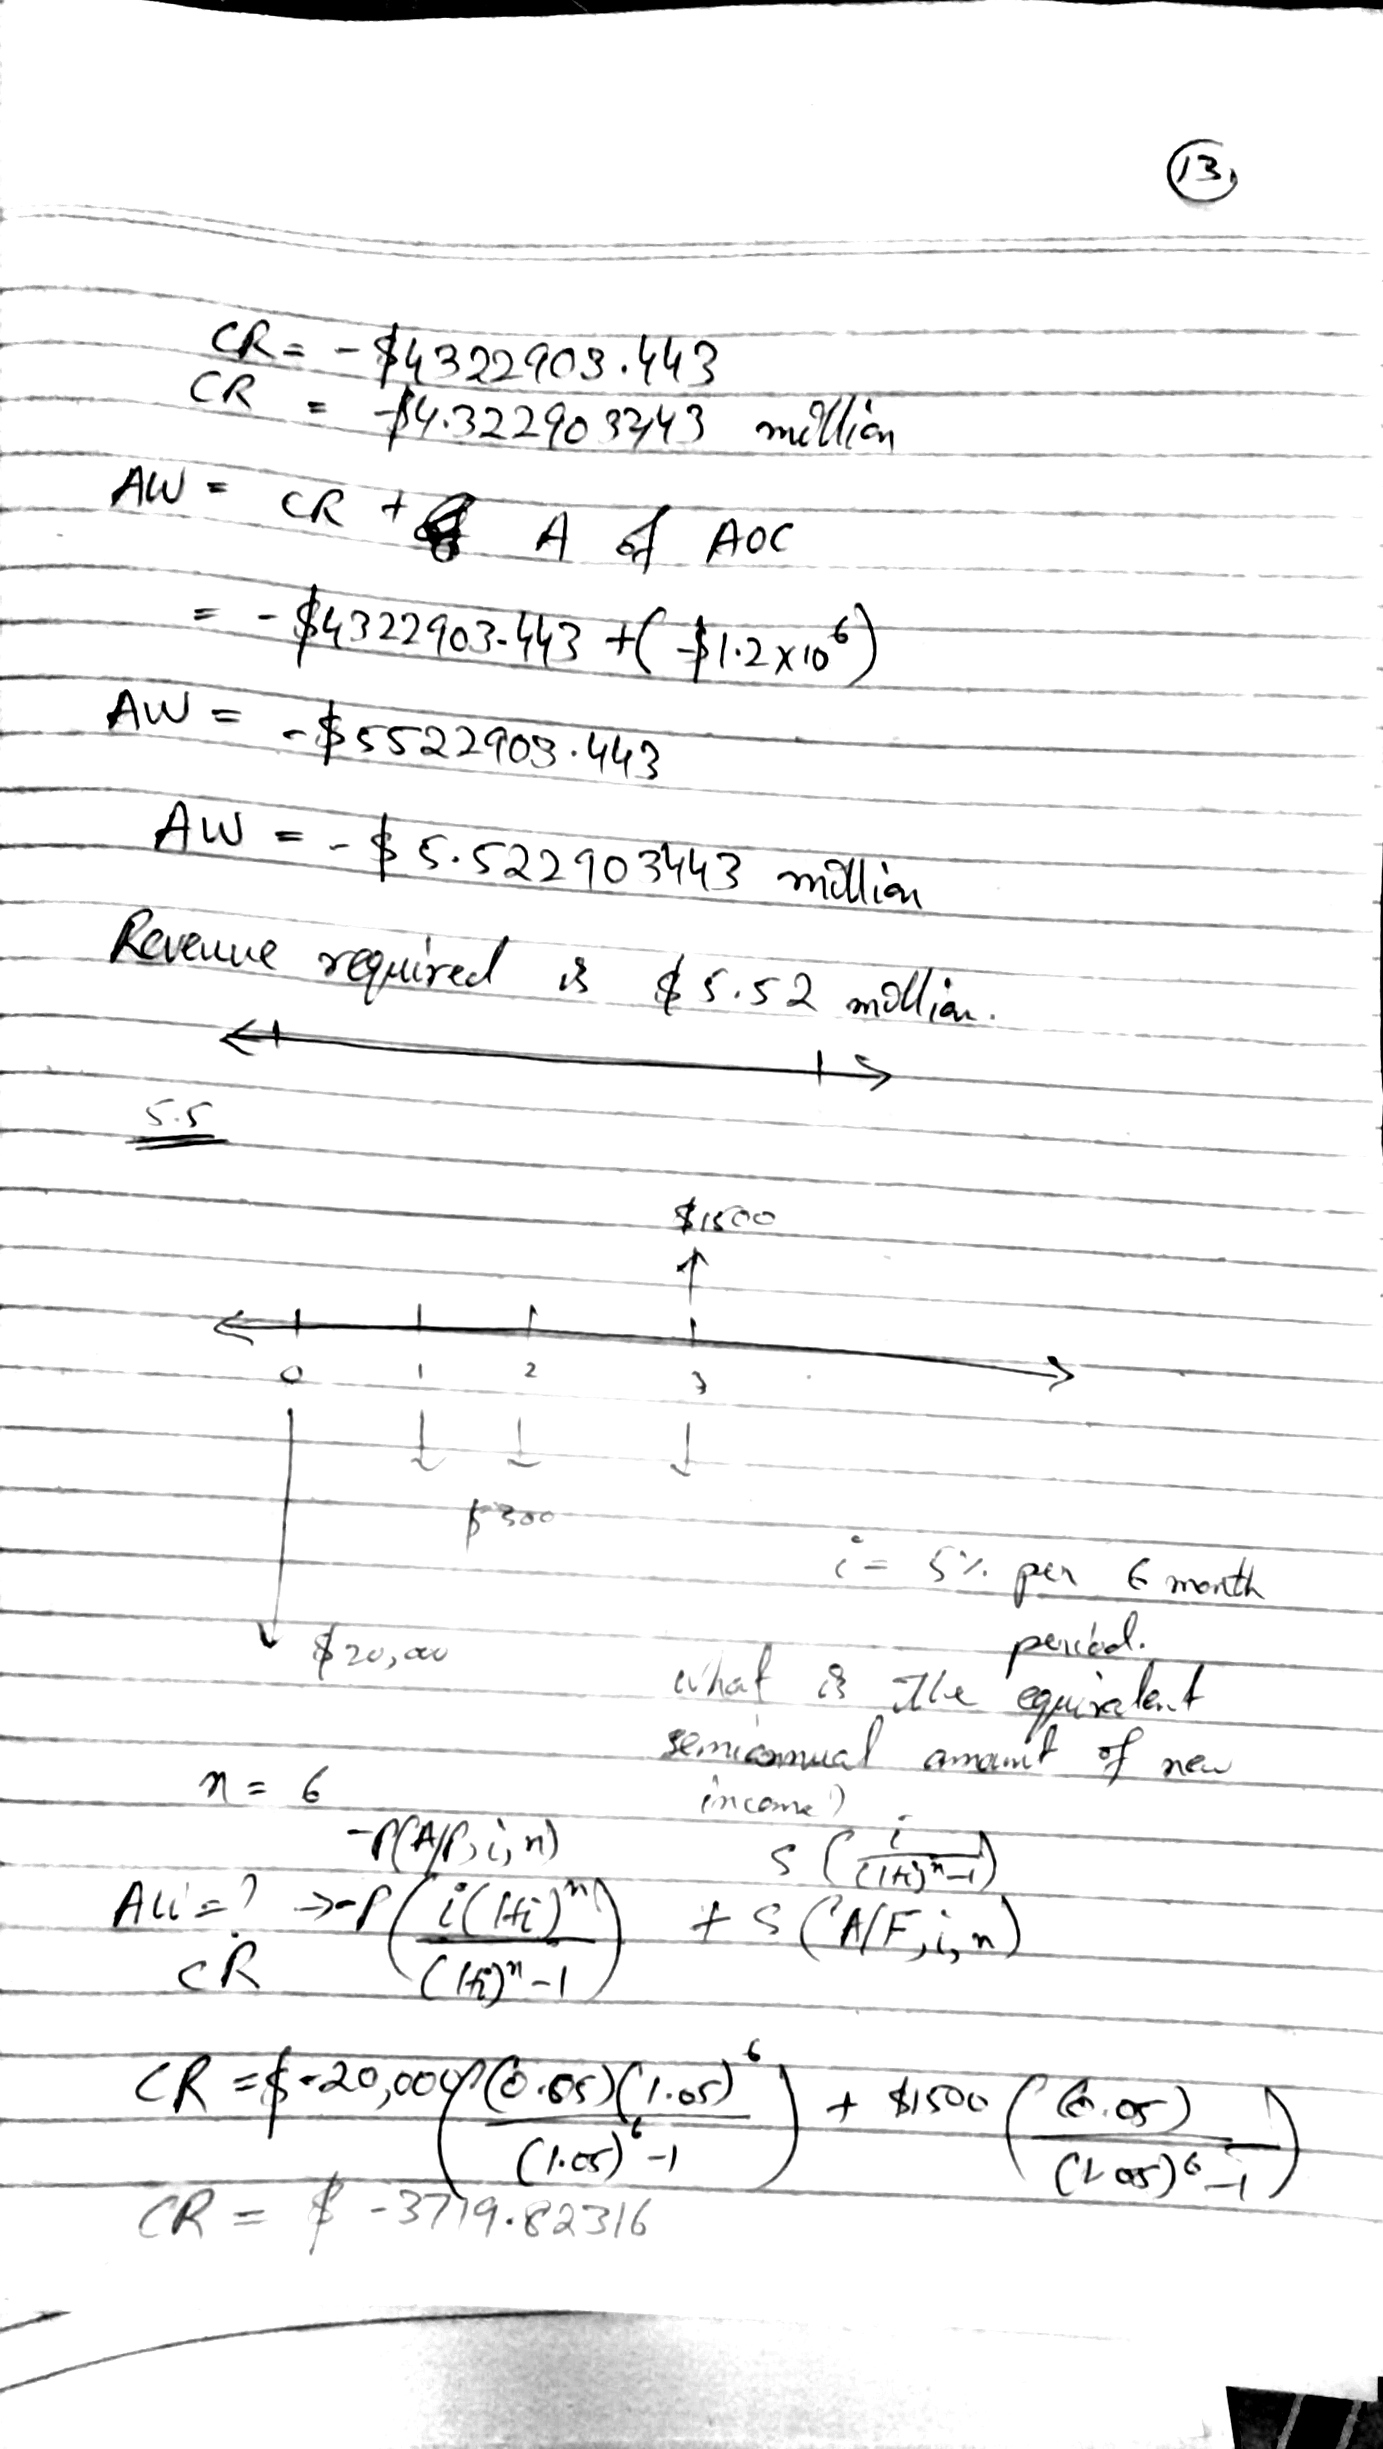 13,
CR = -$4322903.443
CR = -$4.322903443 million
AW = CR + A of AOC
= -$4322903.443 + (-$1.2x10^6)
AW = -$5522903.443
AW = -$5.522903443 million
Revenue required is $5.52 million.
5.5
$1500
0 1 2 3
$300
i = 5% per 6 month
period.
$20,000
what is the equivalent
semiannual amount of new
income?
n = 6
-P(A/P, i, n)
S (i/((1+i)^n-1))
AW = ? → -P (i(1+i)^n/((1+i)^n-1)) + S (A/F, i, n)
CR
CR = $-20,000 ((0.05)(1.05)^6/((1.05)^6-1)) + $1500 ((0.05)/((1.05)^6-1))
CR = $ -3719.82316